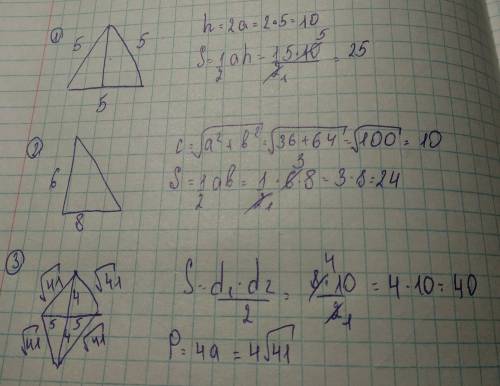 ①
5 5
5
h = 2a = 2·5 = 10
S = 1/2 ah = 1·5·10⁵/2₁ = 25
②
6
8
c = √a² + b² = √36 + 64 = √100 = 10
S = 1/2 ab = 1·6³·8/2₁ = 3·8 = 24
③
√41 √41
4
5 5
4
√41 √41
S = d₁·d₂/2 = 8⁴·10/2₁ = 4·10 = 40
P = 4a = 4√41